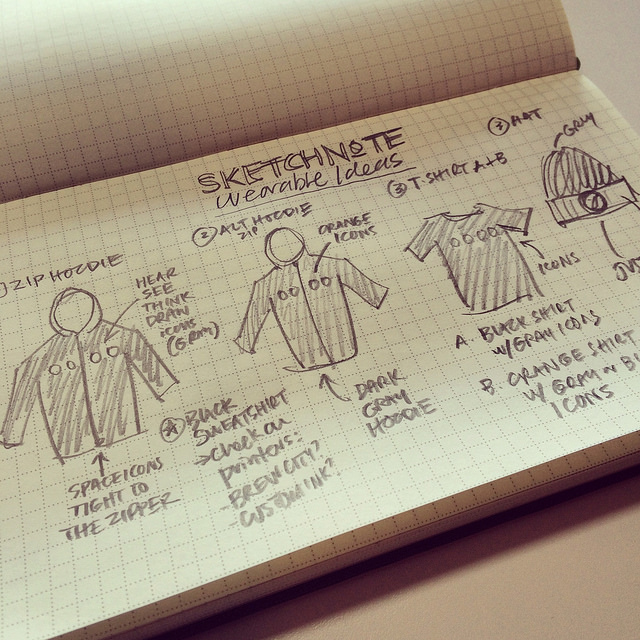 SKETCHNOTE
Wearable Ideas
ZIP HOODIE
HEAR
SEE
THINK
DRAW
ICONS
(GRAY)
SPACE ICONS
TIGHT TO
THE ZIPPER
② ALT HOODIE
ZIP
ORANGE
ICONS
DARK
GRAY
HOODIE
BLACK
SWEATSHIRT
→ Check on
printers:
- BREW CITY?
- CUSTOM INK?
③ T-SHIRT A+B
ICONS
A. BLACK SHIRT
W/GRAY ICONS
B. ORANGE SHIRT
W/ GRAY
ICONS
HAT
GRAY